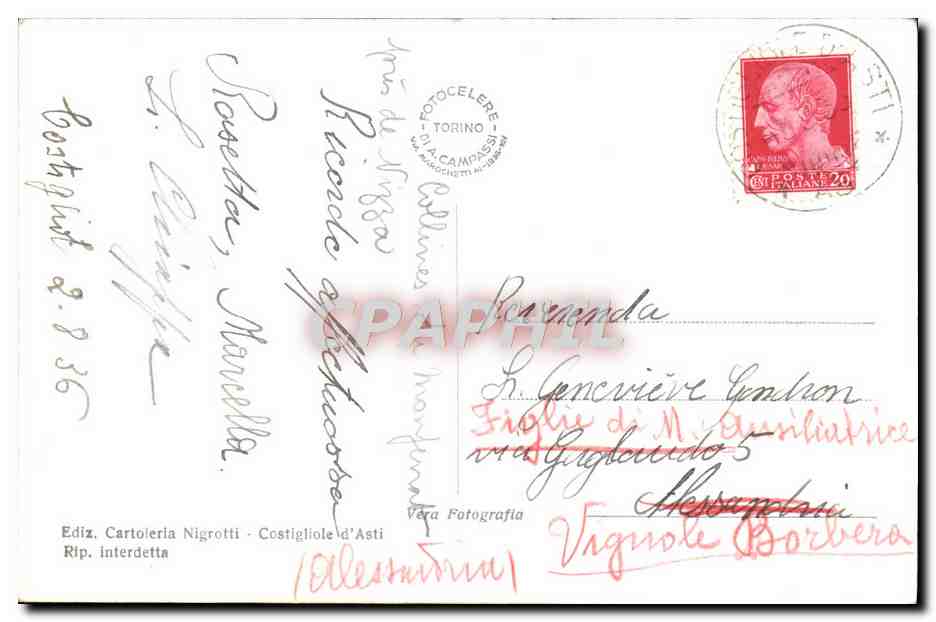 Costigliole 2-8 36
Rosetta, Marcella.
Ricordo affettuoso
près de Nizza
Collines du Monferrato
FOTOCELERE
TORINO
DI A. CAMPASSI
POSTE
CENT ITALIANE 20
CPAPHIL
Reverenda
Sr. Geneviève Gendron
Figlie di M. Ausiliatrice
via Gagliaudo 5
Alessandria
Vignole Borbera
(Alessandria)
Vera Fotografia
Ediz. Cartoleria Nigrotti - Costigliole d'Asti
Rip. interdetta